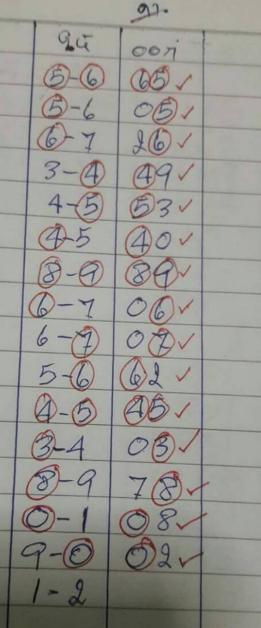 คู่ ออก
5-6 65 ✓
5-6 05 ✓
6-7 26 ✓
3-4 49 ✓
4-5 53 ✓
4-5 40 ✓
8-9 89 ✓
6-7 06 ✓
6-7 07 ✓
5-6 62 ✓
4-5 45 ✓
3-4 03 ✓
8-9 78 ✓
0-1 08 ✓
9-0 02 ✓
1-2